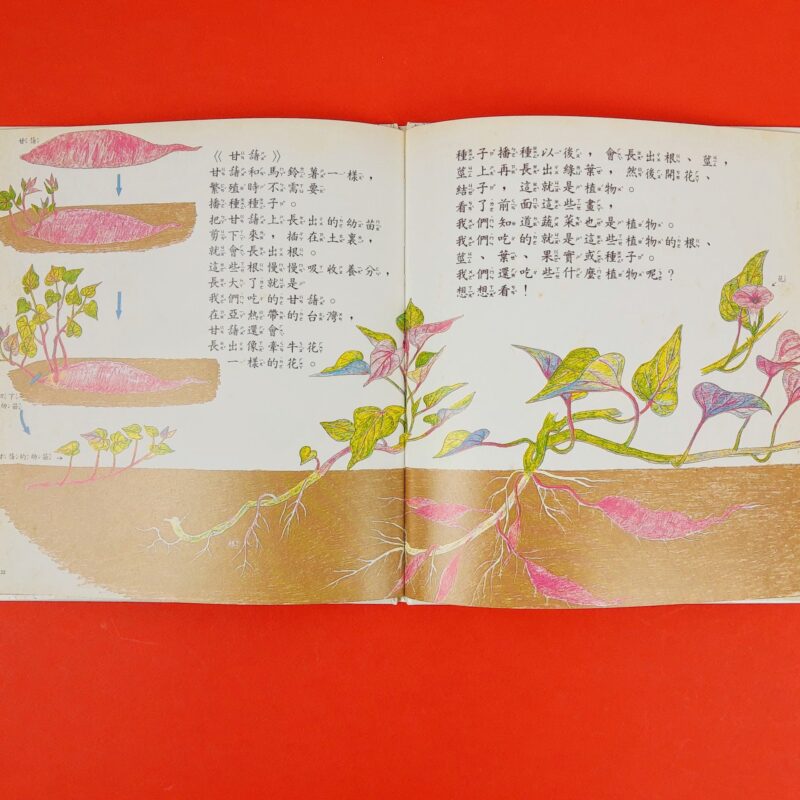 甘藷
《甘藷》
甘藷和馬鈴薯一樣，
繁殖時不需要
播種種子。
把甘藷上長出的幼苗
剪下來，插在土裏，
就會長出根。
這些根慢慢吸收養分，
長大了就是
我們吃的甘藷。
在亞熱帶的台灣，
甘藷還會
長出像牽牛花
一樣的花。
種子播種以後，會長出根、莖，
莖上再長出綠葉，然後開花、
結子，這就是植物。
看了前面這些畫，
我們知道蔬菜也是植物。
我們吃的就是這些植物的根、
莖、葉、果實或種子。
我們還吃些什麼植物呢？
想想看！
花
下
幼苗
藷的幼苗
根
22